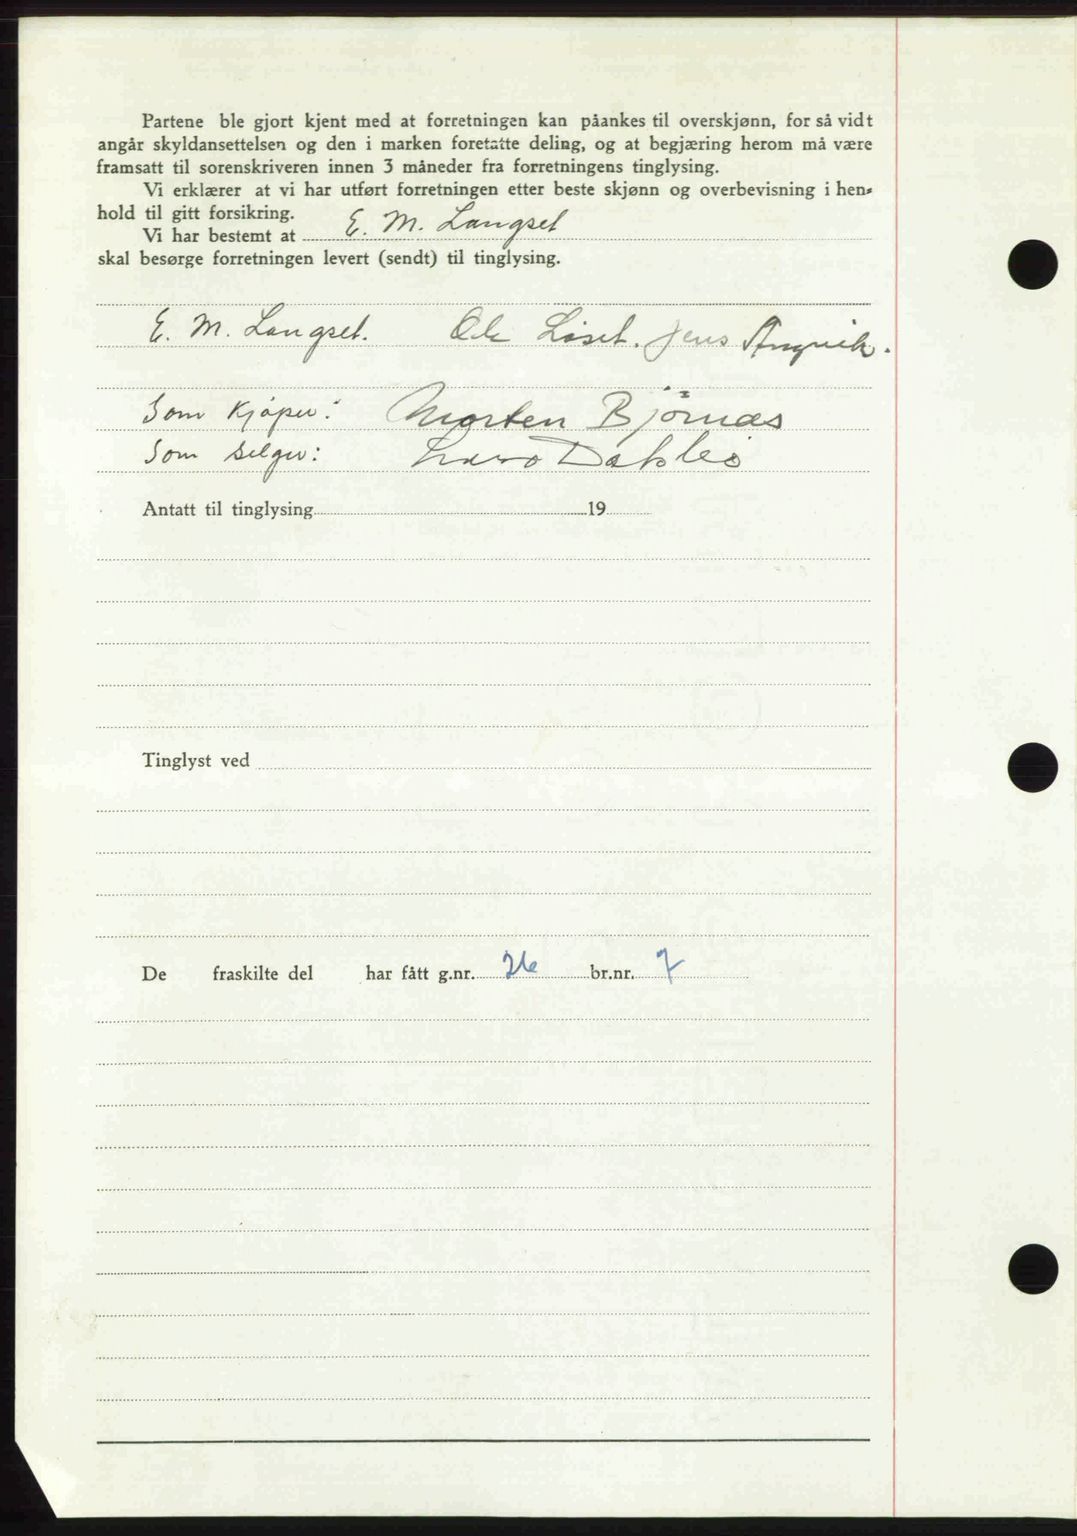 Partene ble gjort kjent med at forretningen kan påankes til overskjønn, for så vidt
angår skyldansettelsen og den i marken foretatte deling, og at begjæring herom må være
framsatt til sorenskriveren innen 3 måneder fra forretningens tinglysing.
Vi erklærer at vi har utført forretningen etter beste skjønn og overbevisning i hen-
hold til gitt forsikring.
Vi har bestemt at E. M. Langset
skal besørge forretningen levert (sendt) til tinglysing.
E. M. Langset. Ole Löset. Jens Angvik.
Som kjöper: Morten Björnås
Som selger: Dahle
Antatt til tinglysing 19
Tinglyst ved
De fraskilte del har fått g.nr. 26 br.nr. 7